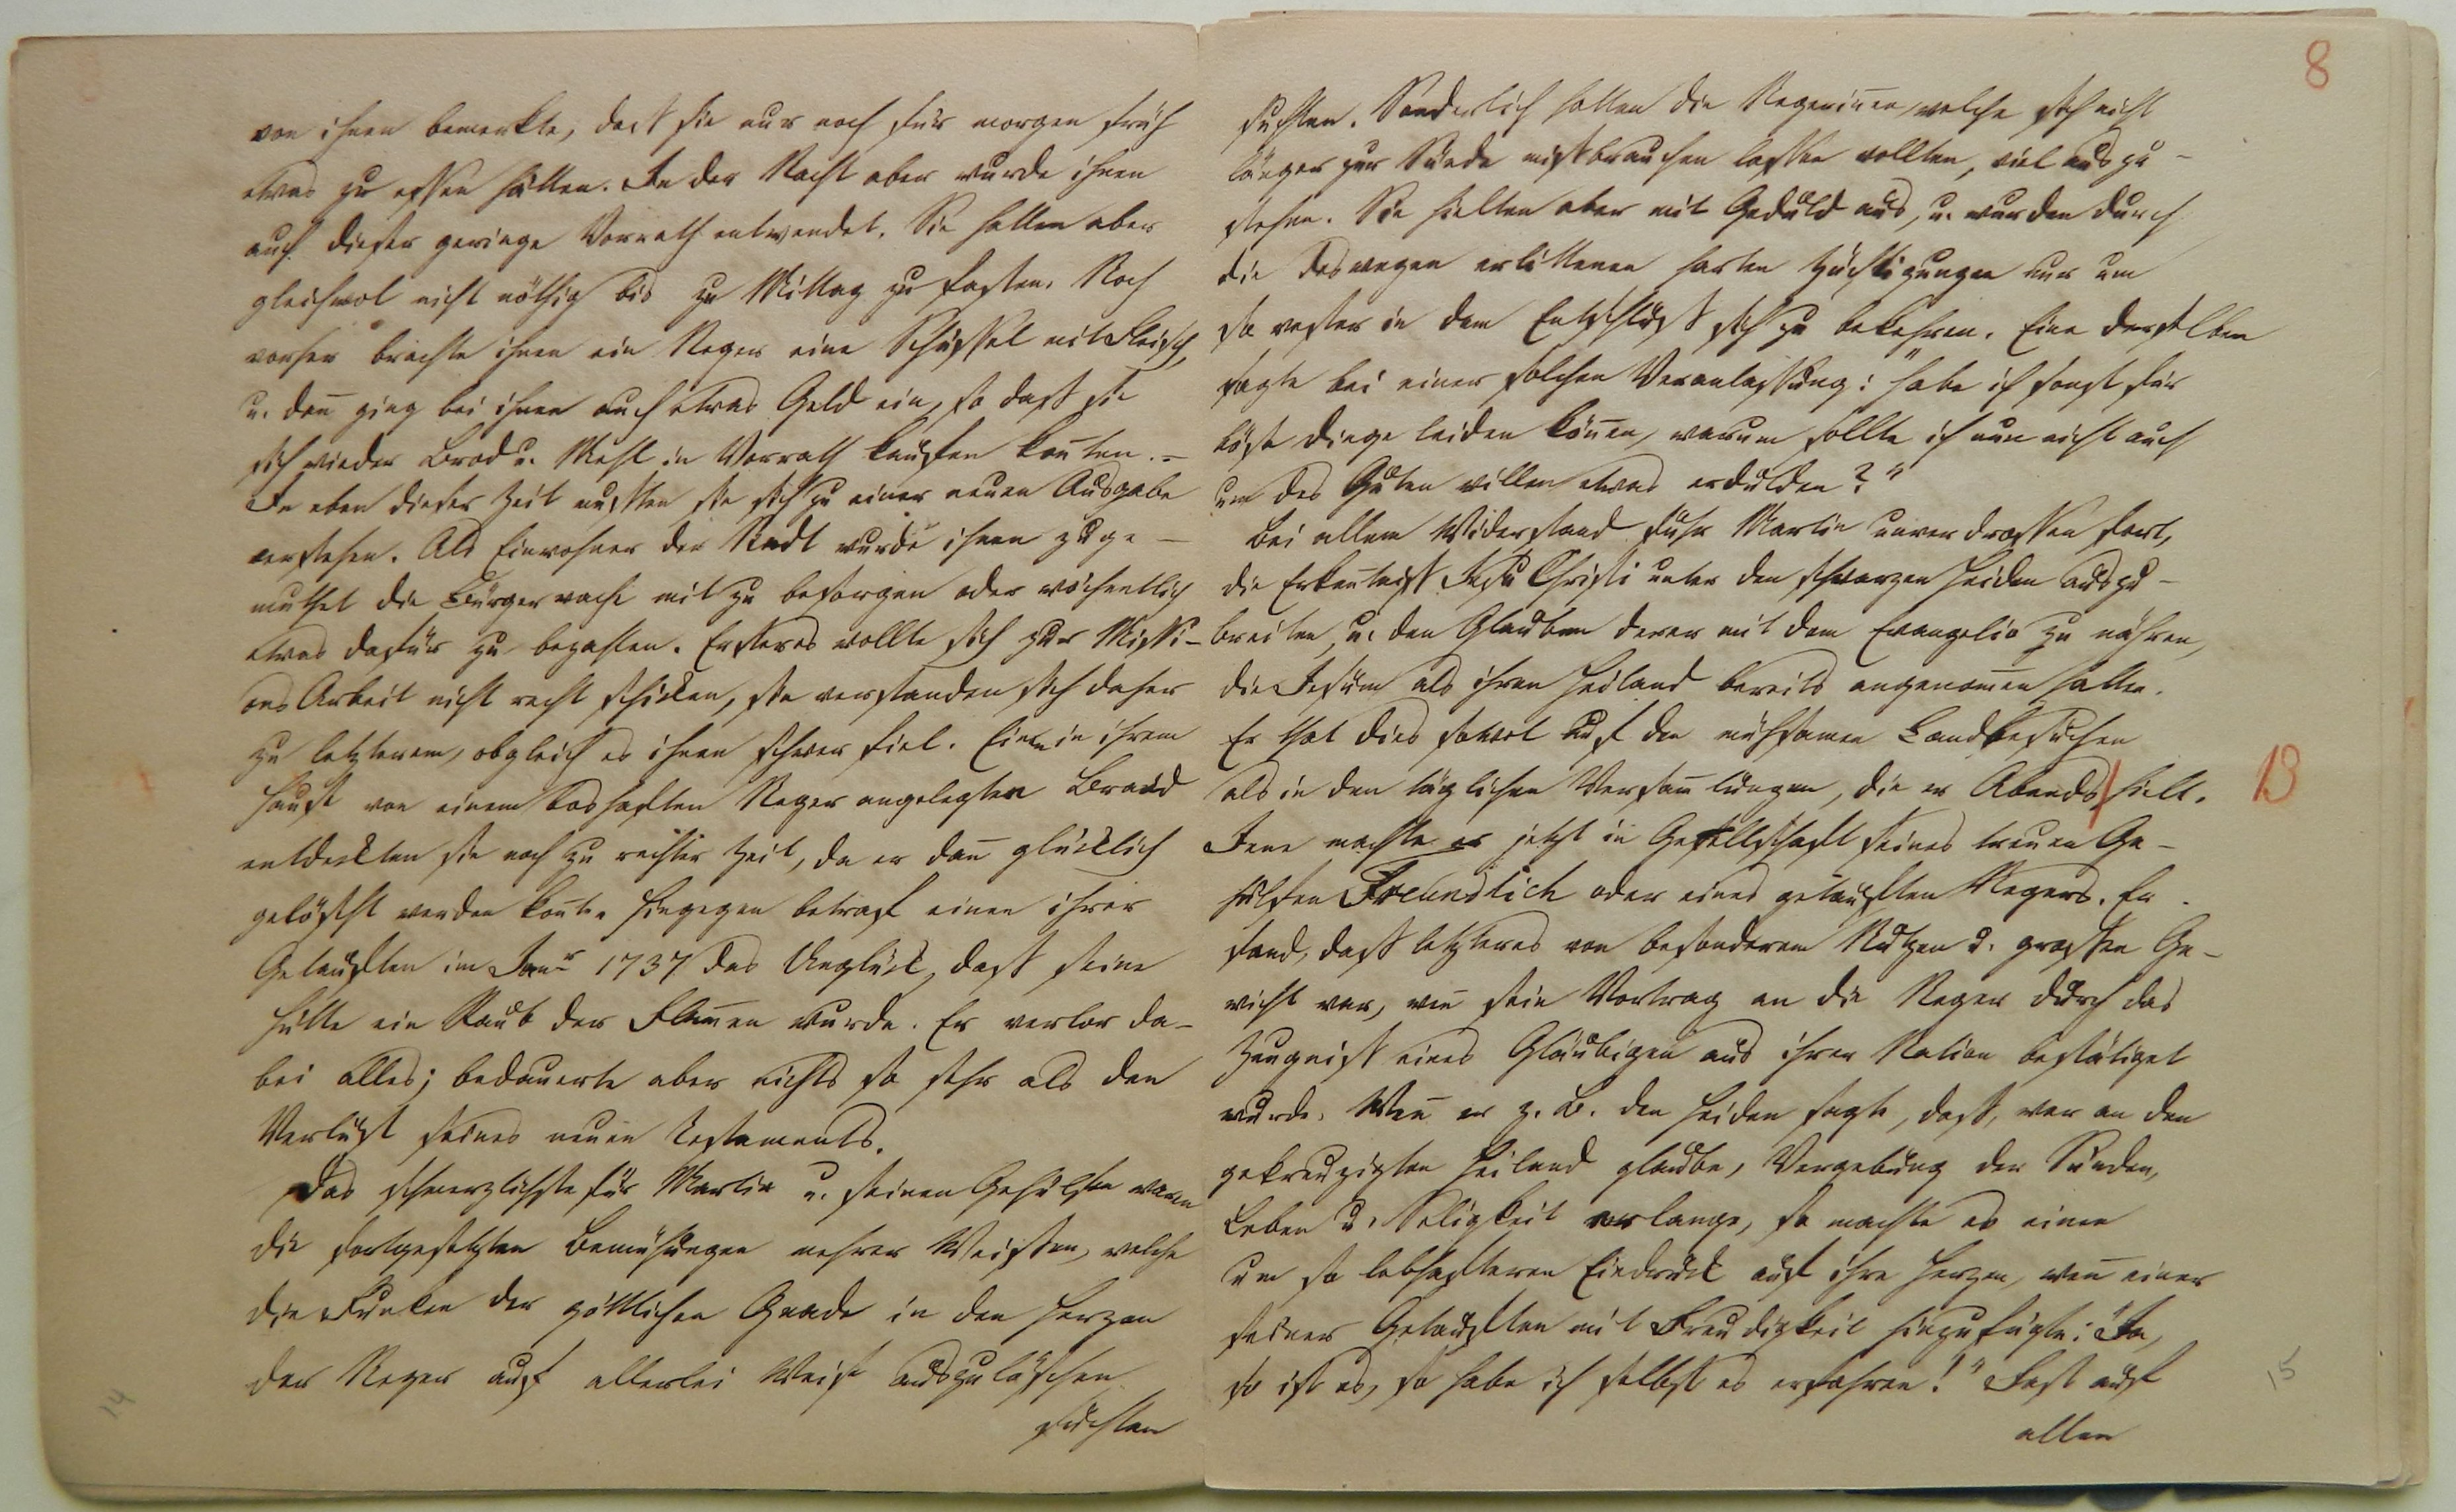 von ihnen bemerkte, daß sie nur noch für morgen früh
etwas zu essen hätten. In der Nacht aber wurde ihnen
auch dieser geringe Vorrath entwendet. Sie hatten aber
gleichwol nicht nöthig bis zu Mittag zu fasten. Noch
vorher brachte ihnen ein Neger eine Schüssel mit Fleisch,
u. dan̄ ging bei ihnen auch etwas Geld ein, so daß sie
sich wieder Brod u. Mehl in Vorrath kaufen kon̄ten. –
In eben dieser Zeit mußten sie sich zu einer neuen Ausgabe
verstehen. Als Einwohner der Stadt wurde ihnen zuge-
muthet die Bürgerwache mit zu besorgen oder wöchentlich
etwas dafür zu bezahlen. Ersteres wollte sich zur Missi-
ons Arbeit nicht recht schicken, sie verstanden sich daher
zu letzterem, obgleich es ihnen schwer fiel. Einen in ihrem
Hause von einem boshaften Neger angelegten Brand
entdeckten sie noch zu rechter Zeit, da er dan̄ glücklich
gelöscht werden kon̄te. Hingegen betraf einen ihrer
Getauften im Janr 1737 das Unglück, daß seine
Hütte ein Raub der Flam̄en wurde. Er verlor da-
bei alles; bedauerte aber nichts so sehr als den
Verlust seines neuen Testaments.
Das schmerzlichste für Martin u. seinen Gehülfen waren
die fortgesetzten Bemühungen mehrer Weissen, welche
die Funken der göttlichen Gnade in den Herzen
der Neger auf allerlei Weise auszulöschen
suchten
14
8
suchten. Sonderlich hatten die Negerin̄en, welche sich nicht
länger zur Sünde mißbrauchen lassen wollten, viel auszu-
stehen. Sie hielten aber mit Geduld aus, u. wurden durch
die deswegen erlittenen harten Züchtigungen nur um
so vester in dem Entschluß sich zu bekehren. Eine derselben
sagte bei einer solchen Veranlassung: "habe ich sonst für
böse Dinge leiden kön̄en, warum sollte ich nun nicht auch
um des Guten willen etwas erdulden?"
Bei allem Widerstand fuhr Martin unverdrossen fort,
die Erken̄tniß Jesu Christi unter den schwarzen Heiden auszu-
breiten, u. den Glauben derer mit dem Evangelio zu nähren,
die Jesum als ihren Heiland bereits angenom̄en hatten.
Er that dies sowol auf den mühsamen Landbesuchen
als in den täglichen Versam̄lungen, die er Abends hielt.
13
Jene machte er jetzt in Gesellschaft seines treuen Ge-
hülfen Freundlich oder eines getauften Negers. Er
fand, daß letzteres von besonderem Nutzen u. großem Ge-
wicht war, wen̄ sein Vortrag an die Neger durch das
Zeugniß eines Gläubigen aus ihrer Nation bestätiget
wurde. Wen̄ er z. B. den Heiden sagte, daß, wer an den
gekreuzigten Heiland glaube, Vergebung der Sünden,
Leben u. Seligkeit erlange, so machte es einen
um so lebhafteren Eindruck auf ihre Herzen, wen̄ einer
seiner Getauften mit Freudigkeit hinzufügte: "Ja,
so ist es, so habe ich selbst es erfahren!" Fast auf
allen
15